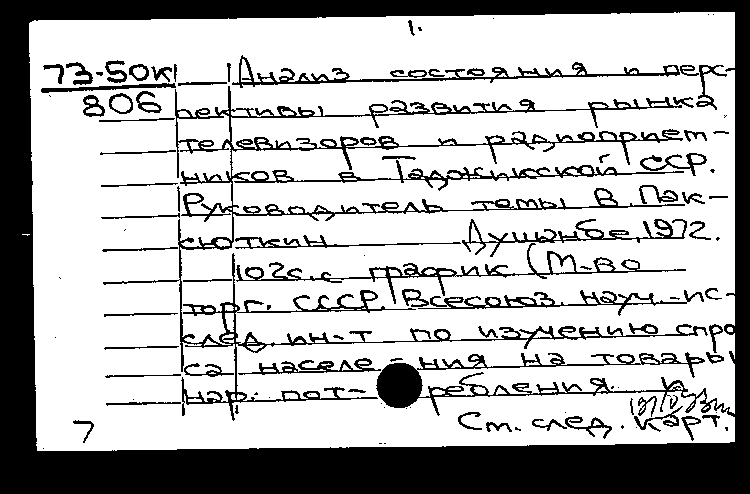 1.
73-50к Анализ состояния и перс-
806 пективы развития рынка
телевизоров и радиоприем-
ников в Таджикской ССР.
Руководитель темы В. Пак-
сюткин. Душанбе, 1972.
102с. с график (М-во
торг. СССР. Всесоюз. науч.-ис-
след. ин-т по изучению спро
са населе-ния на товары
нар. пот-ребления и
7 Ст. след. карт.